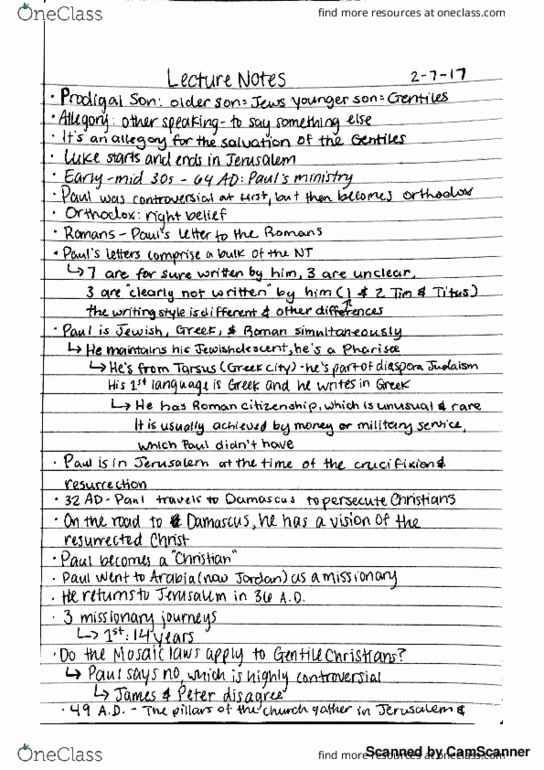 OneClass
find more resources at oneclass.com
Lecture Notes
2-7-17
• Prodigal Son: older son = Jews younger son = Gentiles
• Allegory: other speaking - to say something else
• It's an allegory for the salvation of the Gentiles
• Luke starts and ends in Jerusalem
• Early-mid 30s - 64 AD: Paul's ministry
• Paul was controversial at first, but then becomes orthodox
• Orthodox: right belief
• Romans - Paul's letter to the Romans
• Paul's letters comprise a bulk of the NT
↳ 7 are for sure written by him, 3 are unclear,
3 are "clearly not written" by him (1 & 2 Tim & Titus)
the writing style is different & other differences
• Paul is Jewish, Greek, & Roman simultaneously
↳ He maintains his Jewish descent, he's a Pharisee
↳ He's from Tarsus (Greek city) - he's part of diaspora Judaism
His 1st language is Greek and he writes in Greek
↳ He has Roman citizenship, which is unusual & rare
It is usually achieved by money or military service,
which Paul didn't have
• Paul is in Jerusalem at the time of the crucifixion &
resurrection
• 32 AD - Paul travels to Damascus to persecute Christians
• On the road to Damascus, he has a vision of the
resurrected Christ
• Paul becomes a "Christian"
• Paul went to Arabia (now Jordan) as a missionary
• He returns to Jerusalem in 36 A.D.
• 3 missionary journeys
↳ 1st: 14 years
• Do the Mosaic laws apply to Gentile Christians?
↳ Paul says no, which is highly controversial
↳ James & Peter disagree
• 49 A.D. - The pillars of the church gather in Jerusalem &
OneClass
find more resources at oneclass.com
Scanned by CamScanner